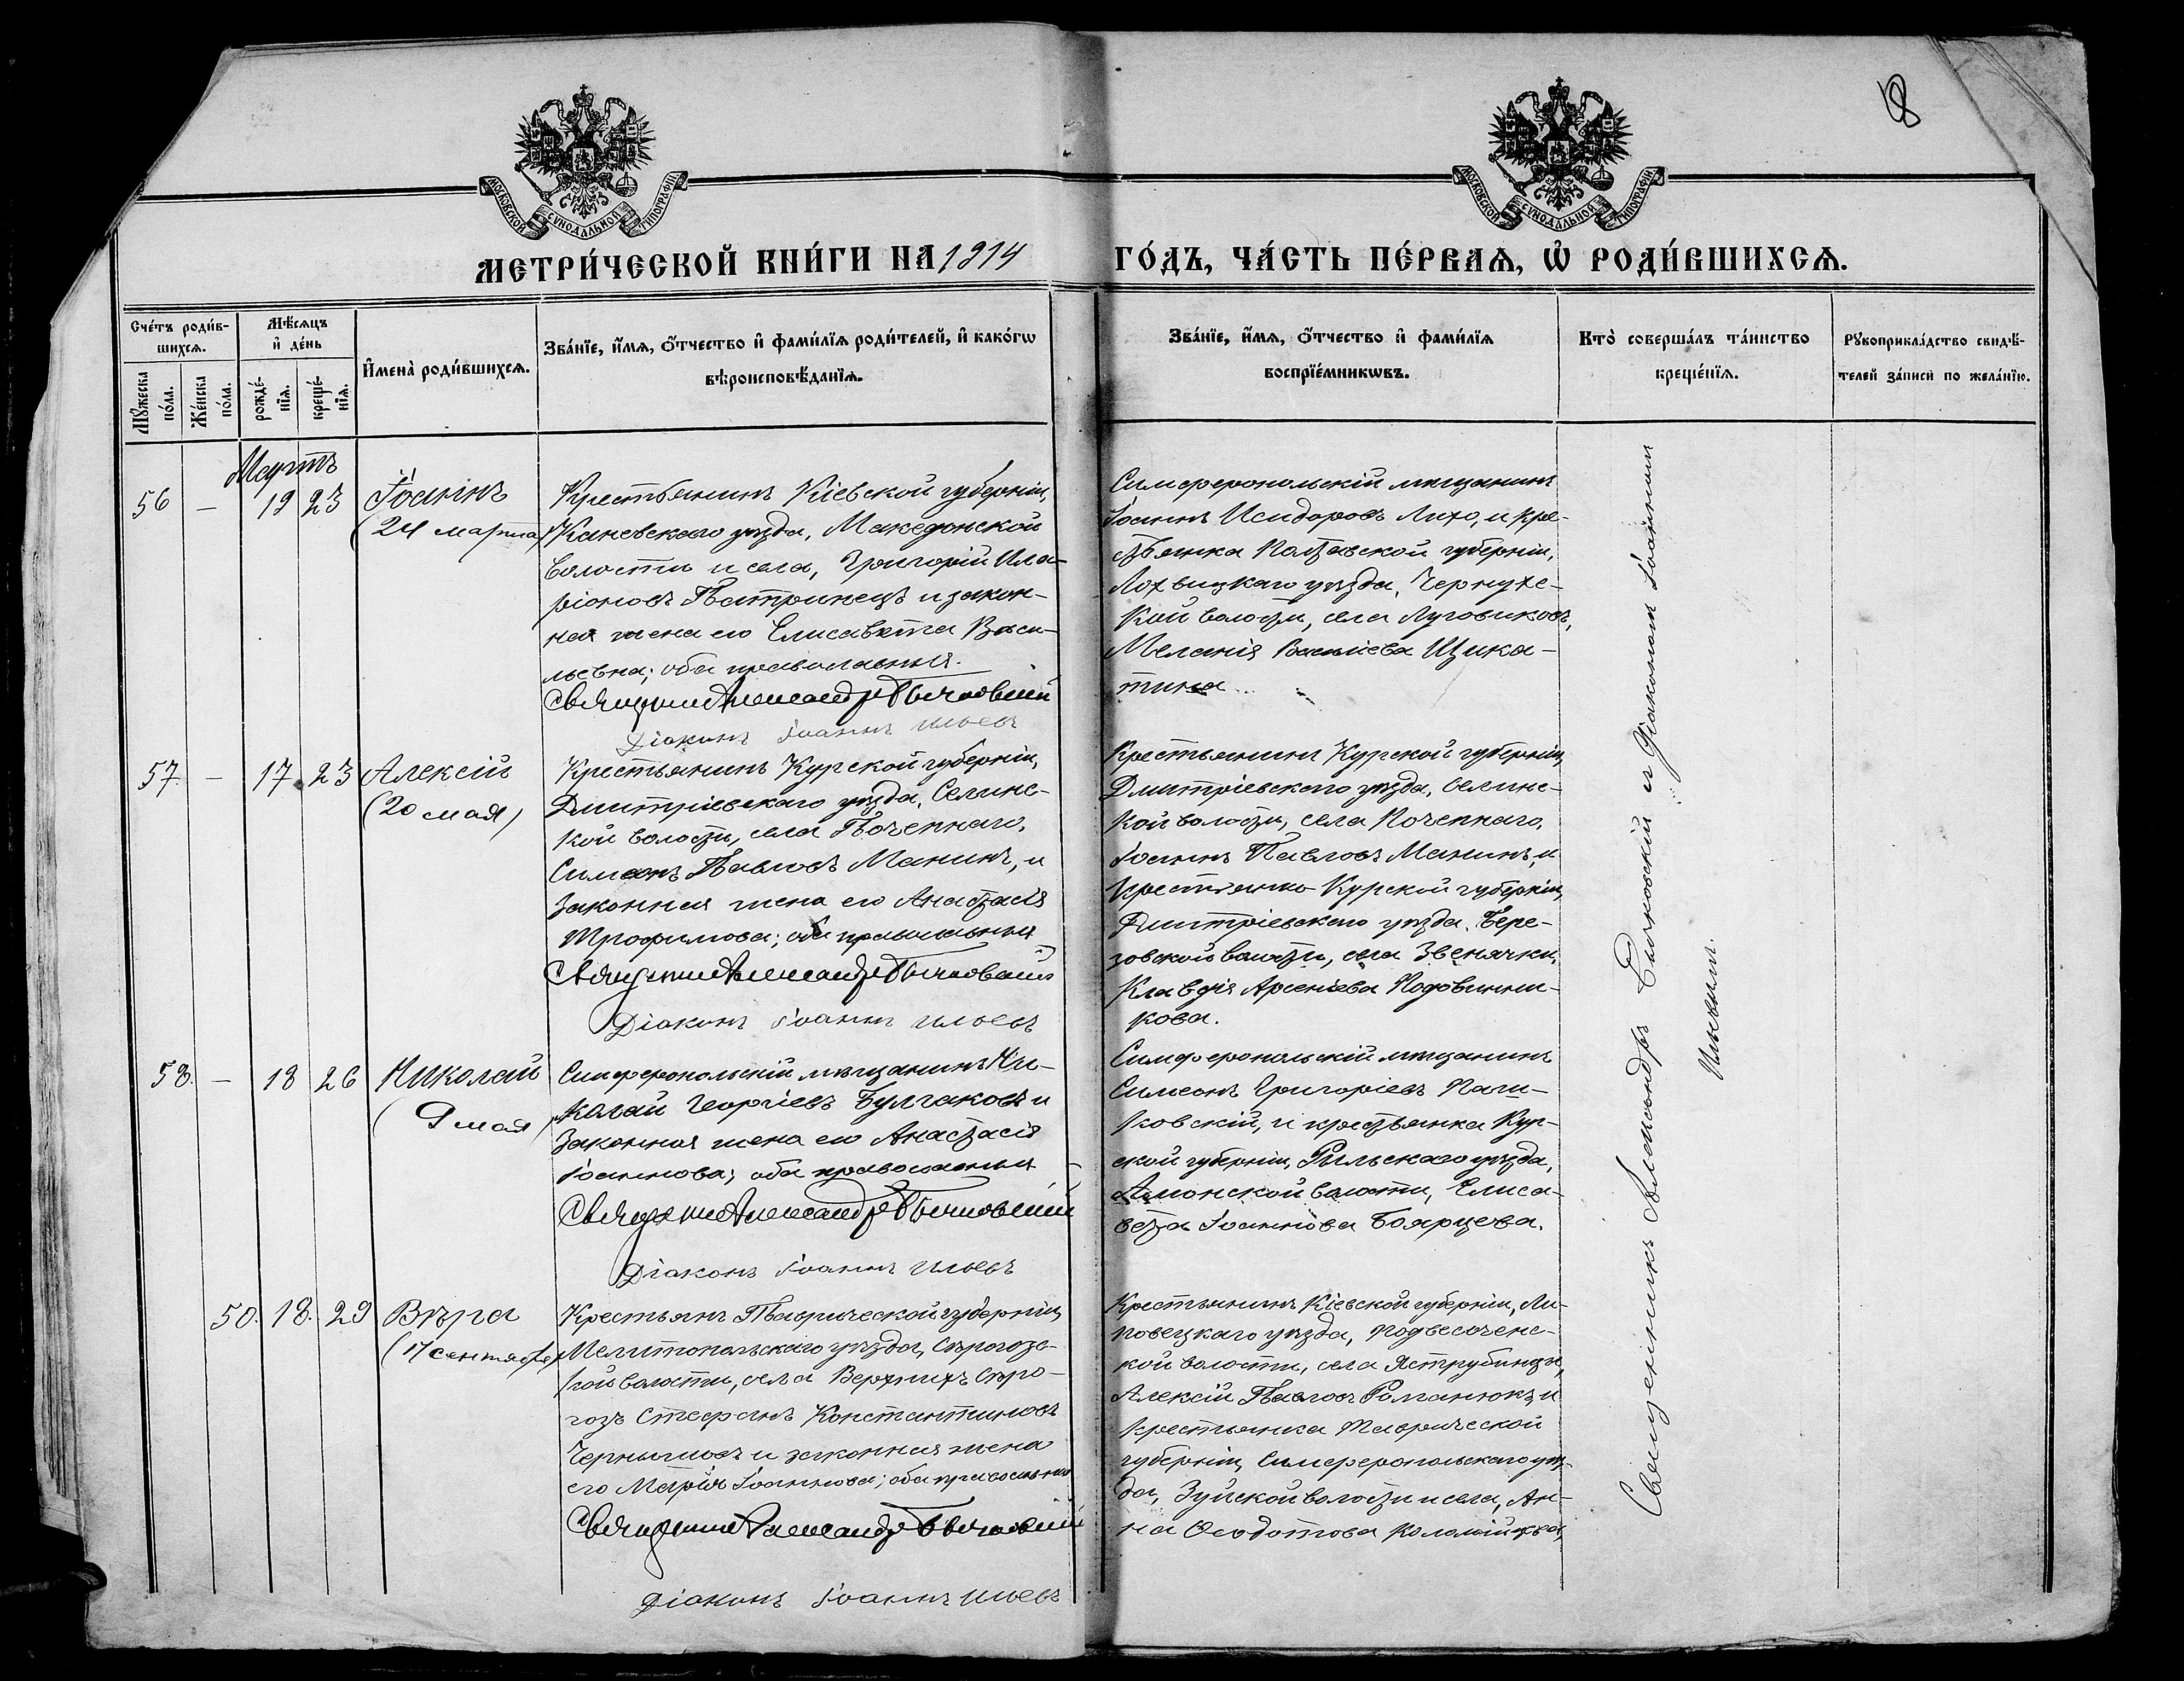 18
МОСКОВСКОЙ СѴНОДАЛЬНОЙ ТИПОГРАФІИ
МОСКОВСКОЙ СѴНОДАЛЬНОЙ ТИПОГРАФІИ
МЕТРИ́ЧЕСКОЙ КНИ́ГИ НА 1914
ГО́ДЪ, ЧА́СТЬ ПЕ́РВАѦ, Ѡ҆ РОДИ́ВШИХСѦ.
Сче́тъ роди́в-
шихсѧ.
Мꙋ́жеска
по́ла.
Же́нска
по́ла.
Мѣ́сѧцъ
и҆ де́нь
рожде́-
нїѧ.
креще́-
нїѧ.
И҆мена̀ роди́вшихсѧ.
Зва́нїе, и҆́мѧ, ѻ҆́тчество и҆ фами́лїѧ роди́телей, и҆ како́гѡ
вѣроисповѣ́данїѧ.
Зва́нїе, и҆́мѧ, ѻ҆́тчество и҆ фами́лїѧ
воспрїе́мникѡвъ.
Кто̀ соверша́лъ та́инство
креще́нїѧ.
Рꙋкоприкла́дство свидѣ́-
телей за́писи по жела́нїю.
Мартъ
56 — 19 23 Іоаннъ
(24 марта)
Крестьянинъ Кіевской губерніи,
Каневскаго уѣзда, Македонской
волости и села, Григорій Ила-
ріоновъ Петринецъ и закон-
ная жена его Елисавета Васи-
льевна; оба православные.
Священникъ Александръ Бычковскій
Діаконъ Іоаннъ Ильевъ
Симферопольскій мѣщанинъ
Іоаннъ Исидоровъ Лихо, и кре-
стьянка Полтавской губерніи,
Лохвицкаго уѣзда, Чернухс-
кой волости, села Луговиковъ,
Меланія Васильева Щика-
тина.
57. — 17. 23 Алексій
(20 мая)
Крестьянинъ Курской губерніи,
Дмитріевскаго уѣзда, Селинс-
кой волости, села Поченнаго,
Симеонъ Павловъ Манинъ, и
законная жена его Анастасія
Трофимова; оба православные
Священникъ Александръ Бычковскій
Діаконъ Іоаннъ Ильевъ
Крестьянинъ Курской губерніи,
Дмитріевскаго уѣзда, Селинс-
кой волости, села Поченнаго,
Іоаннъ Павловъ Манинъ, и
крестьянка Курской губерніи,
Дмитріевскаго уѣзда, Бере-
зовской волости, села Звенячки,
Клавдія Арсеніева Подовинни-
кова.
58. — 18 26 Николай
(9 мая)
Симферопольскій мѣщанинъ Ни-
колай Георгіевъ Булгаковъ и
законная жена его Анастасія
Іоаннова; оба православные
Священникъ Александръ Бычковскій
Діаконъ Іоаннъ Ильевъ
Симферопольскій мѣщанинъ
Симеонъ Григоріевъ Паш-
ковскій, и крестьянка Кур-
ской губерніи, Рыльскаго уѣзда,
Амонской волости, Елиса-
вета Іоаннова Боярцева.
50. 18. 29 Вѣра
(17 сентября)
Крестьянъ Таврической губерніи,
Мелитопольскаго уѣзда, Сѣрогозс-
кой волости, села Верхнихъ Сѣро-
гозъ Стефанъ Константиновъ
и законная жена
его Марія Іоаннова; оба православные
Священникъ Александръ Бычковскій
Діаконъ Іоаннъ Ильевъ
Крестьянинъ Кіевской губерніи, Ли-
повецкаго уѣзда, Подвесоченс-
кой волости, села Яструбинцы,
Алексій Павловъ Романюкъ, и
крестьянка Таврической
губерніи, Симферопольскаго уѣз-
да, Зуйской волости и села, Ан-
на Ѳеодотова Коломійцева,
Священникъ Александръ Бычковскій и Діаконъ Іоаннъ
Ильевъ.